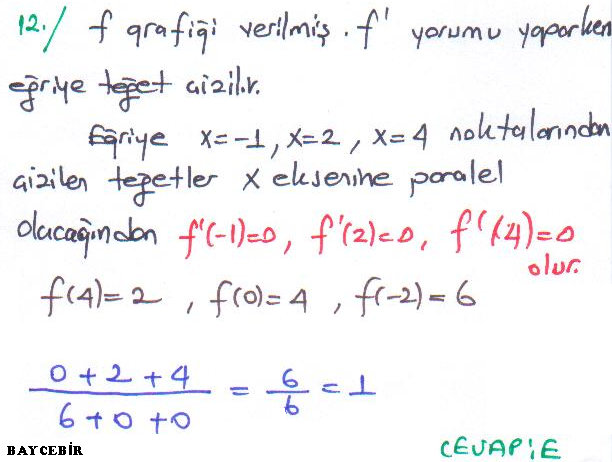 12./ f grafiği verilmiş. f' yorumu yaparken
eğriye teğet çizilir.
Eğriye x=-1, x=2, x=4 noktalarından
çizilen teğetler x eksenine paralel
olacağından f'(-1)=0, f'(2)=0, f'(4)=0
olur.
f(4)=2 , f(0)=4 , f(-2)=6
0+2+4 / 6+0+0 = 6/6 = 1
BAYCEBİR
CEVAP:E